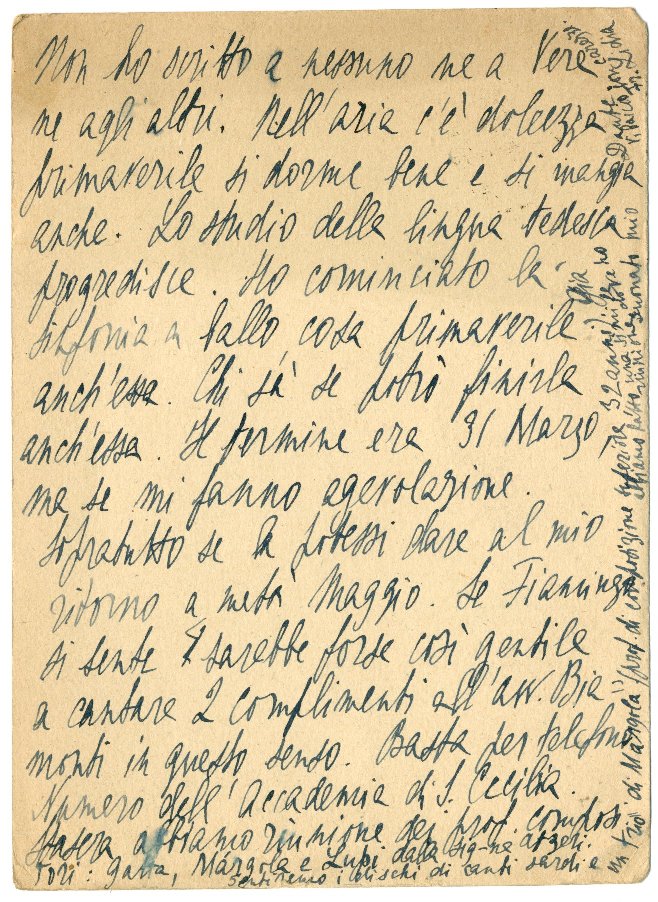 Non ho scritto a nessuno ne a Vere
ne agli altri. Nell'aria c'è dolcezza
primaverile si dorme bene e si mangia
anche. Lo studio della lingua tedesca
progredisce. Ho cominciato la
sinfonia a ballo, cosa primaverile
anch'essa. Chi sà se potrò finirla
anch'essa. Il termine era 31 Marzo,
ma se mi fanno agevolazione.
Sopratutto se la potessi dare al mio
ritorno a metà Maggio. Se Fiamingo
si sente sarebbe forse così gentile
a cantare 2 complimenti all'avv. Bia-
monti in questo senso. Basta per telefono
Numero dell'Accademia di S. Cecilia.
Stasera abbiamo riunione dei prof. composi-
tori: Gatta, Màrgola e Lupi dalla sig-na
Sentiremo i dischi di canti sardi e
un trio di Màrgola (prof. di composizione inferiore 32 anni). Già
abbiamo fatto una riunione
suonato mio
Dante